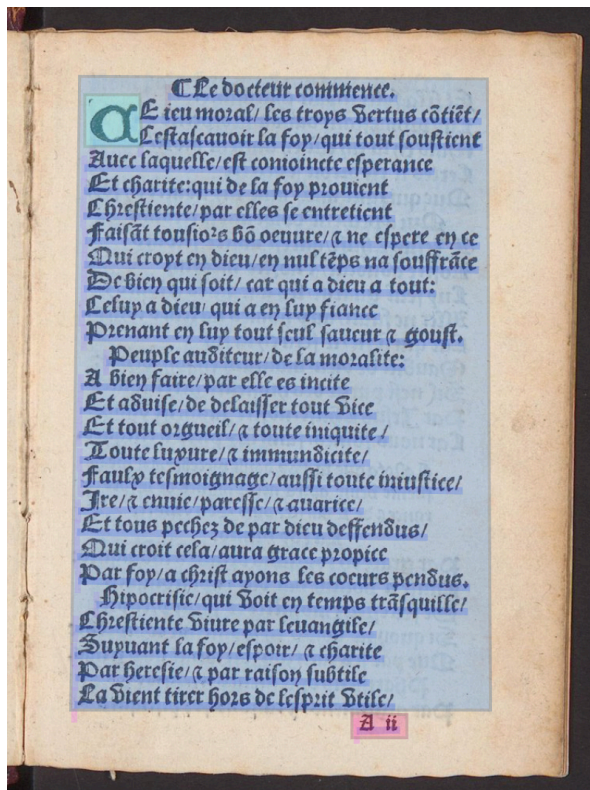 ⸿Le docteur commence.
CE ieu moral/ les troys vertus cõtiẽt/
Cestascauoir la foy/qui tout soustient
Auec laquelle/est conioincte esperance
Et charite:qui de la foy prouient
Chrestiente/par elles se entretient
Faisãt tousiors bõ oeuure/⁊ ne espere en ce
Qui croyt en dieu/en nul tẽps na souffrãce
De bien qui soit/ car qui a dieu a tout:
Celuy a dieu/ qui a en luy fiance
Prenant en luy tout seul saueur ⁊ goust.
Peuple auditeur/de la moralite:
A bien faire/par elle es incite
Et aduise/de delaisser tout vice
Et tout orgueil/⁊ toute iniquite/
Toute luxure/⁊ immundicite/
Faulx tesmoignage/aussi toute iniustice/
Ire/⁊ enuie/paresse/⁊ auarice/
Et tous pechez de par dieu deffendus/
Qui croit cela/aura grace propice
Par foy/a christ ayons les coeurs pendus.
Hipocrisie/qui voit en temps trãsquille/
Chrestiente viure par leuangile/
Suyuant la foy/espoir/ ⁊ charite
Par heresie/⁊ par raison subtile
La vient tirer hors de lesprit vtile/
A ii